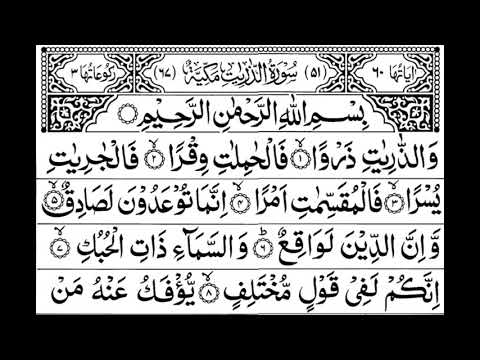 اٰیَاتُهَا ٦٠ (٥١) سُوْرَةُ الذّٰرِیٰتِ مَكِّیَّةٌ (٦٧) رُكُوْعَاتُهَا ٣
بِسْمِ اللّٰهِ الرَّحْمٰنِ الرَّحِیْمِ
وَالذّٰرِیٰتِ ذَرْوًا ۙ﴿١﴾ فَالْحٰمِلٰتِ وِقْرًا ۙ﴿٢﴾ فَالْجٰرِیٰتِ
یُسْرًا ۙ﴿٣﴾ فَالْمُقَسِّمٰتِ اَمْرًا ۙ﴿٤﴾ اِنَّمَا تُوْعَدُوْنَ لَصَادِقٌ ۙ﴿٥﴾
وَّاِنَّ الدِّیْنَ لَوَاقِعٌ ؕ﴿٦﴾ وَالسَّمَآءِ ذَاتِ الْحُبُكِ ۙ﴿٧﴾
اِنَّكُمْ لَفِیْ قَوْلٍ مُّخْتَلِفٍ ۙ﴿٨﴾ یُّؤْفَكُ عَنْهُ مَنْ